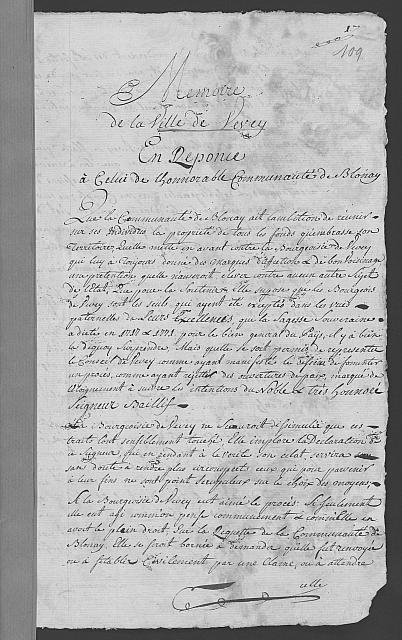 17
109
Memoire
de la Ville de Vevey
En Reponse
à Celui de l'honnorable Communauté de Blonay
Que la Communauté de Blonay ait l'ambition de reünir
sur ses Individus, la proprieté de tous les fonds qu'embrasse son
Territoire, Quelle mette en avant contre la Bourgeoisie de Vevey
qui luy a toujours donné des marques d'affection & de bon voisinage
une pretention quelle n'auroit elever contre aucun autre sujet
de l'Etat, Que pour la Soutenir Elle supose que les Bourgeois
de Vevey sont les seuls qui ayent été exceptés dans les vües
paternelles de Leurs Excellences, que la Sagesse Souveraine
a dicté en 1717 & 1771 pour le bien general du Pays, il y a bien
de quoy surprendre, Mais quelle se soit permis de representer
le Conseil de Vevey comme ayant manifesté le de
un procés, comme ayant rejetté des ouvertures de paix, marqué de
l'éloignement à suivre les intentions du Noble & tres honnoré
Seigneur Baillif
La Bourgeoisie de Vevey ne sauroit dissimuler que ces
traits l'ont sensiblement touché, Elle implore la Declaration de
ce Seigneur, qui en rendant à la verité son eclat, servira
sans doute à rendre plus circonspects ceux qui pour parvenir
à leur fins ne sont point scrupuleux sur le choix des moyens,
Si la Bourgeoisie de Vevey eut aimé le procés, Si seulement
elle eut agi comme on pense communément & comme elle en
avoit le plein droit, sur la Requette de la Communauté de
Blonay, Elle se seroit bornée à demander quelle fut renvoyée
ou à s'etablir Civilement par une Clame, ou à attendre
elle